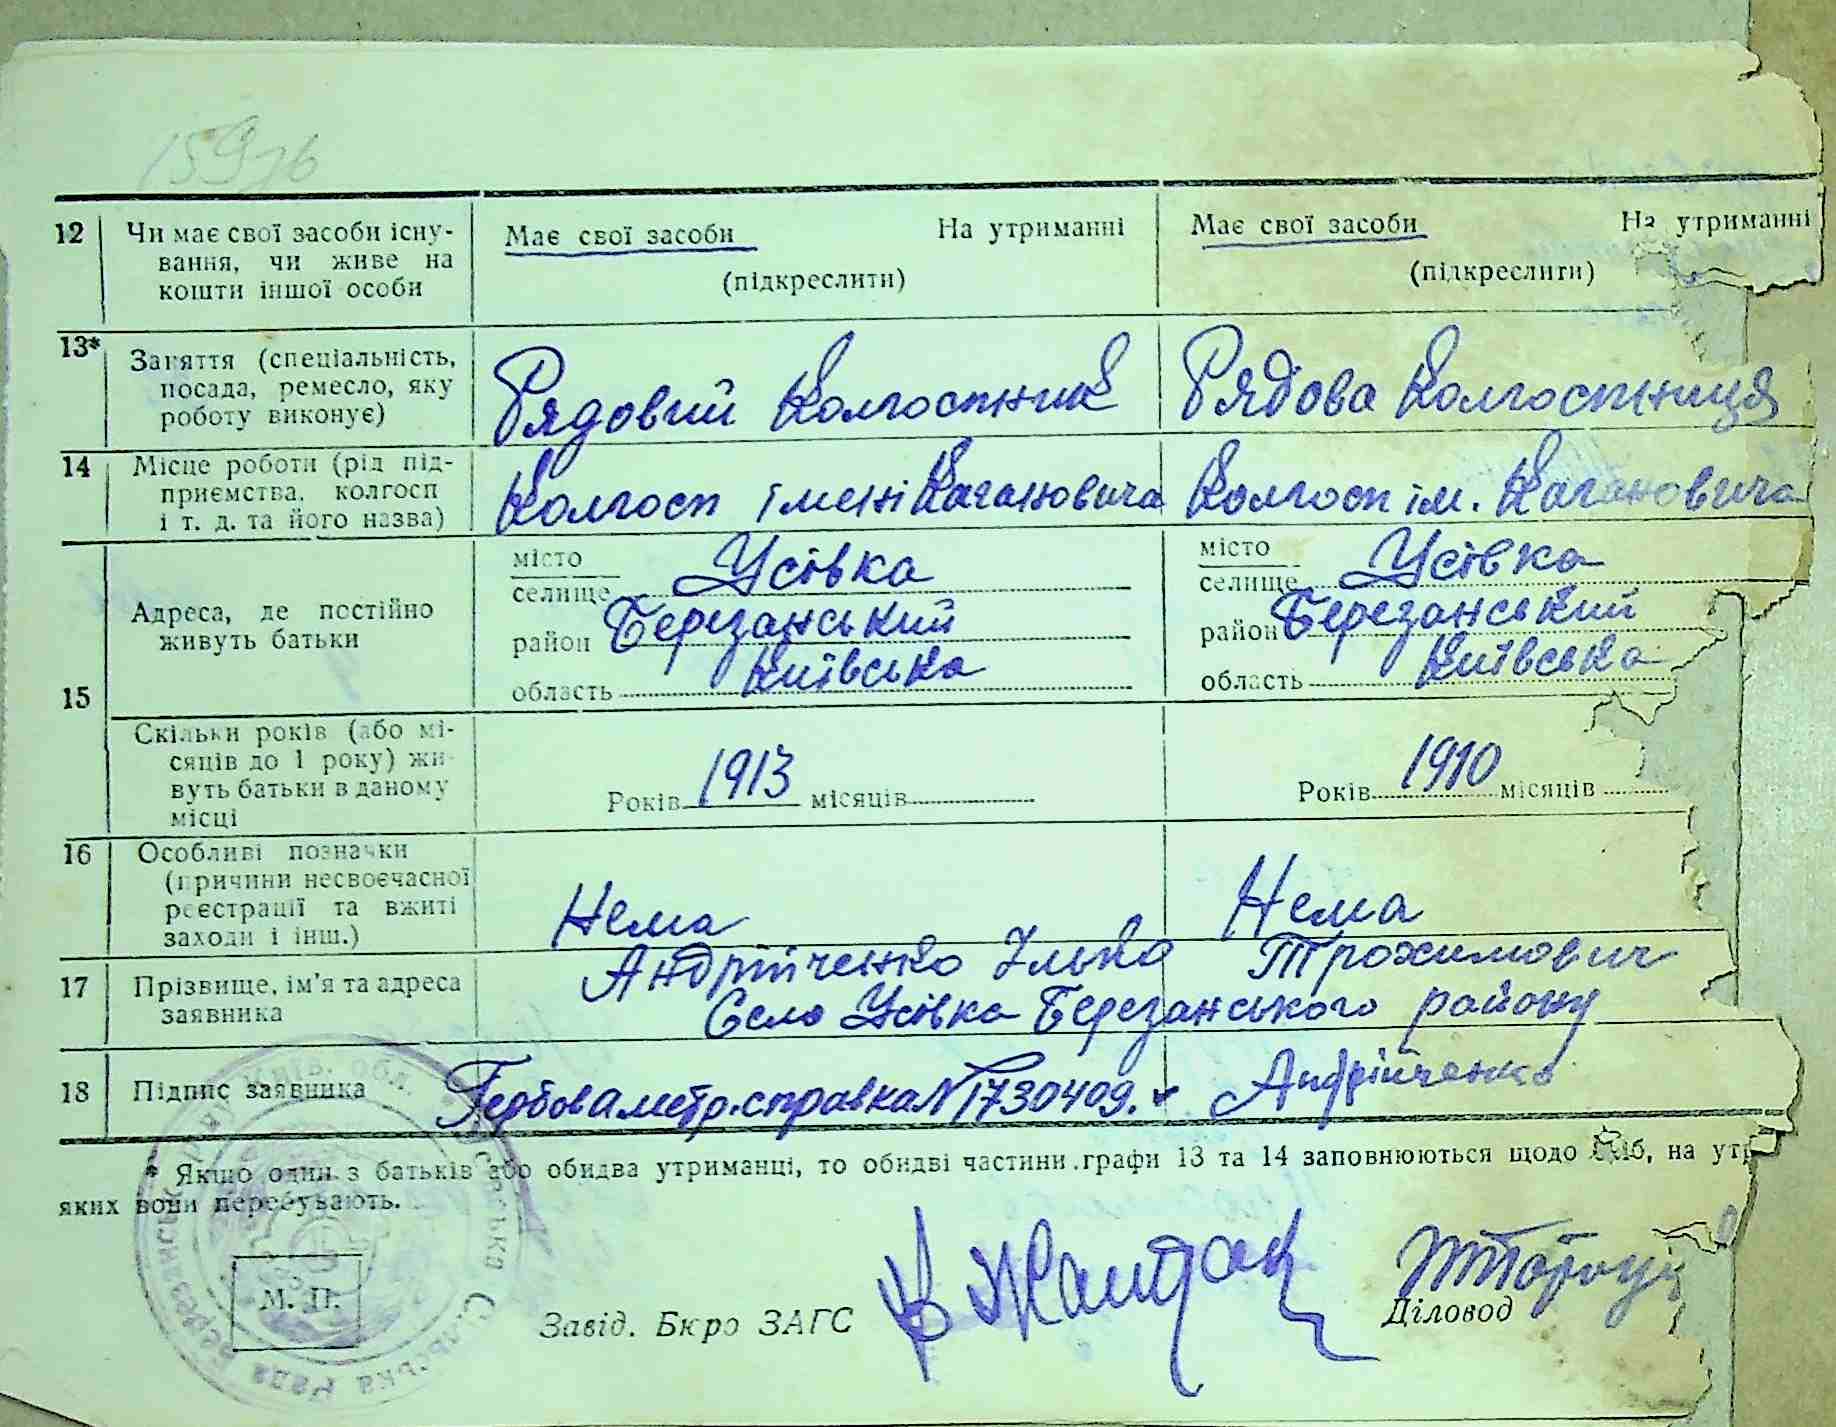 159зв
12 Чи має свої засоби існу- Має свої засоби На утриманні Має свої засоби На утриманні
вання, чи живе на (підкреслити) (підкреслити)
кошти іншої особи
13* Заняття (спеціальність, Рядовий Колгоспник Рядова Колгоспниця
посада, ремесло, яку
роботу виконує)
14 Місце роботи (рід під- Колгосп імені Кагановича Колгосп ім. Кагановича
приємства, колгосп
і т. д. та його назва)
15 Адреса, де постійно
живуть батьки
місто Усівка місто Усівка
селище селище
район Березанський район Березанський
область Київська область Київська
Скільки років (або мі-
сяців до 1 року) жи-
вуть батьки в даному
місці
Років 1913 місяців Років 1910 місяців
16 Особливі позначки
(причини несвоєчасної
реєстрації та вжиті
заходи і інш.) Нема Нема
17 Прізвище, ім'я та адреса Андрійченко Ілько Трохимович
заявника Село Усівка Березанського району
18 Підпис заявника Гербова метр. справка № 1730409. Андрійченко
* Якщо один з батьків або обидва утриманці, то обидві частини графи 13 та 14 заповнюються щодо осіб, на ут
яких вони перебувають.
М. П.
Завід. Бюро ЗАГС Діловод